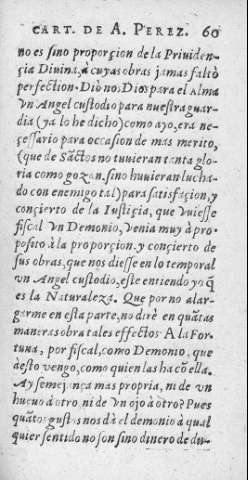 CART. DE A. PEREZ. 60
no es sino proporçion de la Priuiden-
çia Diuina, à cuyas obras jamas faltò
perfection. Diò no, Dios para el Alma
vn Angel custodio para nuestra guar-
dia (ya lo he dicho) como ayo, era ne-
çessario para occasion de mas merito,
(que de Sãctos no tuuieran tanta glo-
ria como gozan, sino huuieran lucha-
do con enemigo tal) para satisfaçion, y
conçierto de la Iustiçia, que vuiesse
fiscal vn Demonio, venia muy à pro-
posito à la proporçion, y conçierto de
sus obras, que nos diesse en lo temporal
vn Angel custodio, este entiendo yo q̃
es la Naturaleza. Que por no alar-
garme en esta parte, no dirè en quãtas
maneras obra tales effectos. A la For-
tuna, por fiscal, como Demonio, que
desto vengo, como quien las ha cõ ella.
Ay semejança mas propria, ni de vn
hueuo à otro, ni de vn ojo à otro? Pues
quãtos gustos nos dà el demonio à qual
quier sentido no son sino dinero de du-